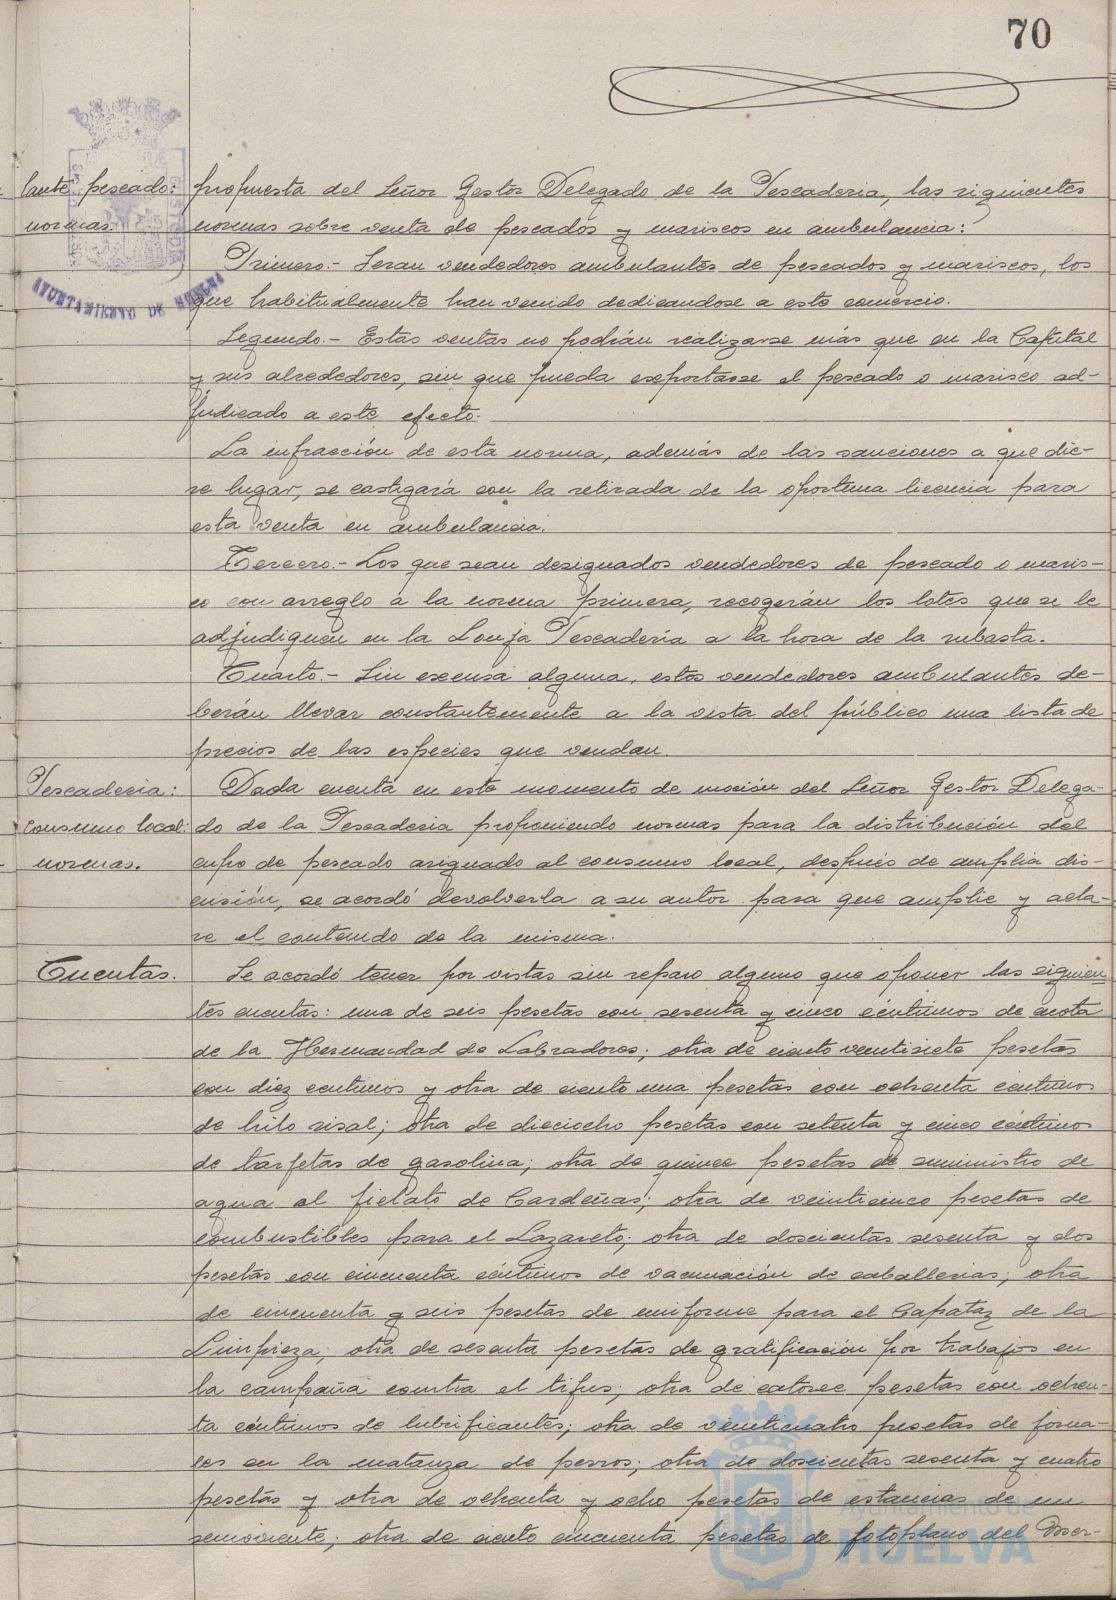 70
lante pescado: propuesta del Señor Gestor Delegado de la Pescaderia, las siguientes
normas. normas sobre venta de pescados y mariscos en ambulancia:
Primero.- Seran vendedores ambulantes de pescados y mariscos, los
que habitualmente han venido dedicandose a este comercio.
AYUNTAMIENTO DE HUELVA
Segundo.- Estas ventas no podrán realizarse más que en la Capital
y sus alrededores, sin que pueda exportarse el pescado o marisco ad-
judicado a este efecto.
La infracción de esta norma, además de las sanciones a que die-
re lugar, se castigará con la retirada de la oportuna licencia para
esta venta en ambulancia.
Tercero.- Los que sean designados vendedores de pescado o maris-
co con arreglo a la norma primera, recogerán los lotes que se le
adjudiquen en la Lonja Pescadería a la hora de la subasta.
Cuarto.- Sin excusa alguna, estos vendedores ambulantes de-
berán llevar constantemente a la vista del público una lista de
precios de las especies que vendan.
Pescaderia: Dada cuenta en este momento de moción del Señor Gestor Delega-
consumo local: do de la Pescaderia proponiendo normas para la distribución del
normas. cupo de pescado asignado al consumo local, después de amplia dis-
cusión, se acordó devolverla a su autor para que amplie y acla-
re el contenido de la misma.
Cuentas. Se acordó tener por vistas sin reparo alguno que oponer las siguien-
tes cuentas: una de seis pesetas con sesenta y cinco céntimos de cuota
de la Hermandad de Labradores; otra de ciento ventisiete pesetas
con diez centimos y otra de ciento una pesetas con ochenta centimos
de hilo sisal; otra de dieciocho pesetas con setenta y cinco céntimos
de tarjetas de gasolina; otra de quince pesetas de suministro de
agua al fielato de Cardeñas; otra de veinticinco pesetas de
combustibles para el Lazareto; otra de doscientas sesenta y dos
pesetas con cincuenta céntimos de vacunación de caballerias; otra
de cincuenta y seis pesetas de uniforme para el Capataz de la
Limpieza; otra de sesenta pesetas de gratificación por trabajos en
la campaña contra el tifus; otra de catorce pesetas con ochen-
ta céntimos de lubrificantes; otra de veinticuatro pesetas de jorna-
les en la matanza de perros; otra de doscientas sesenta y cuatro
pesetas y otra de ochenta y ocho pesetas de estancias de un
semoviente; otra de ciento cincuenta pesetas de fotoplano del Inser-
Ayuntamiento de
HUELVA